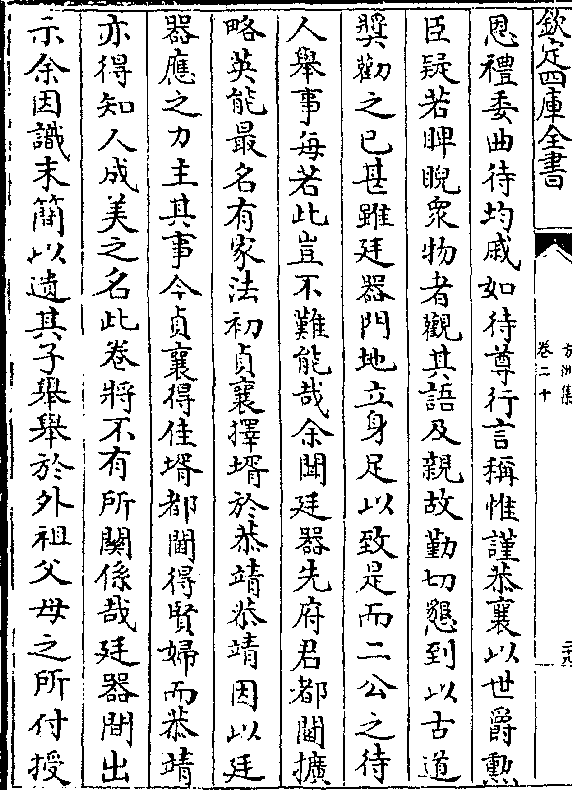 欽定四庫全書
方洲集
卷二十
恩禮委曲待均戚如待尊行言稱惟謹恭襄以世爵勲
臣疑若睥睨衆物者觀其語及親故勤切懇到以古道
奬勸之已甚雖廷器門地立身足以致是而二公之待
人舉事每若此豈不難能哉余聞廷器先府君都閫擴
略英能最名有家法初貞襄擇壻於恭靖恭靖因以廷
器應之力主其事今貞襄得佳壻都閫得賢婦而恭靖
亦得知人成美之名此卷將不有所關係哉廷器間出
示余因識末簡以遺其子舉舉於外祖父母之所付授